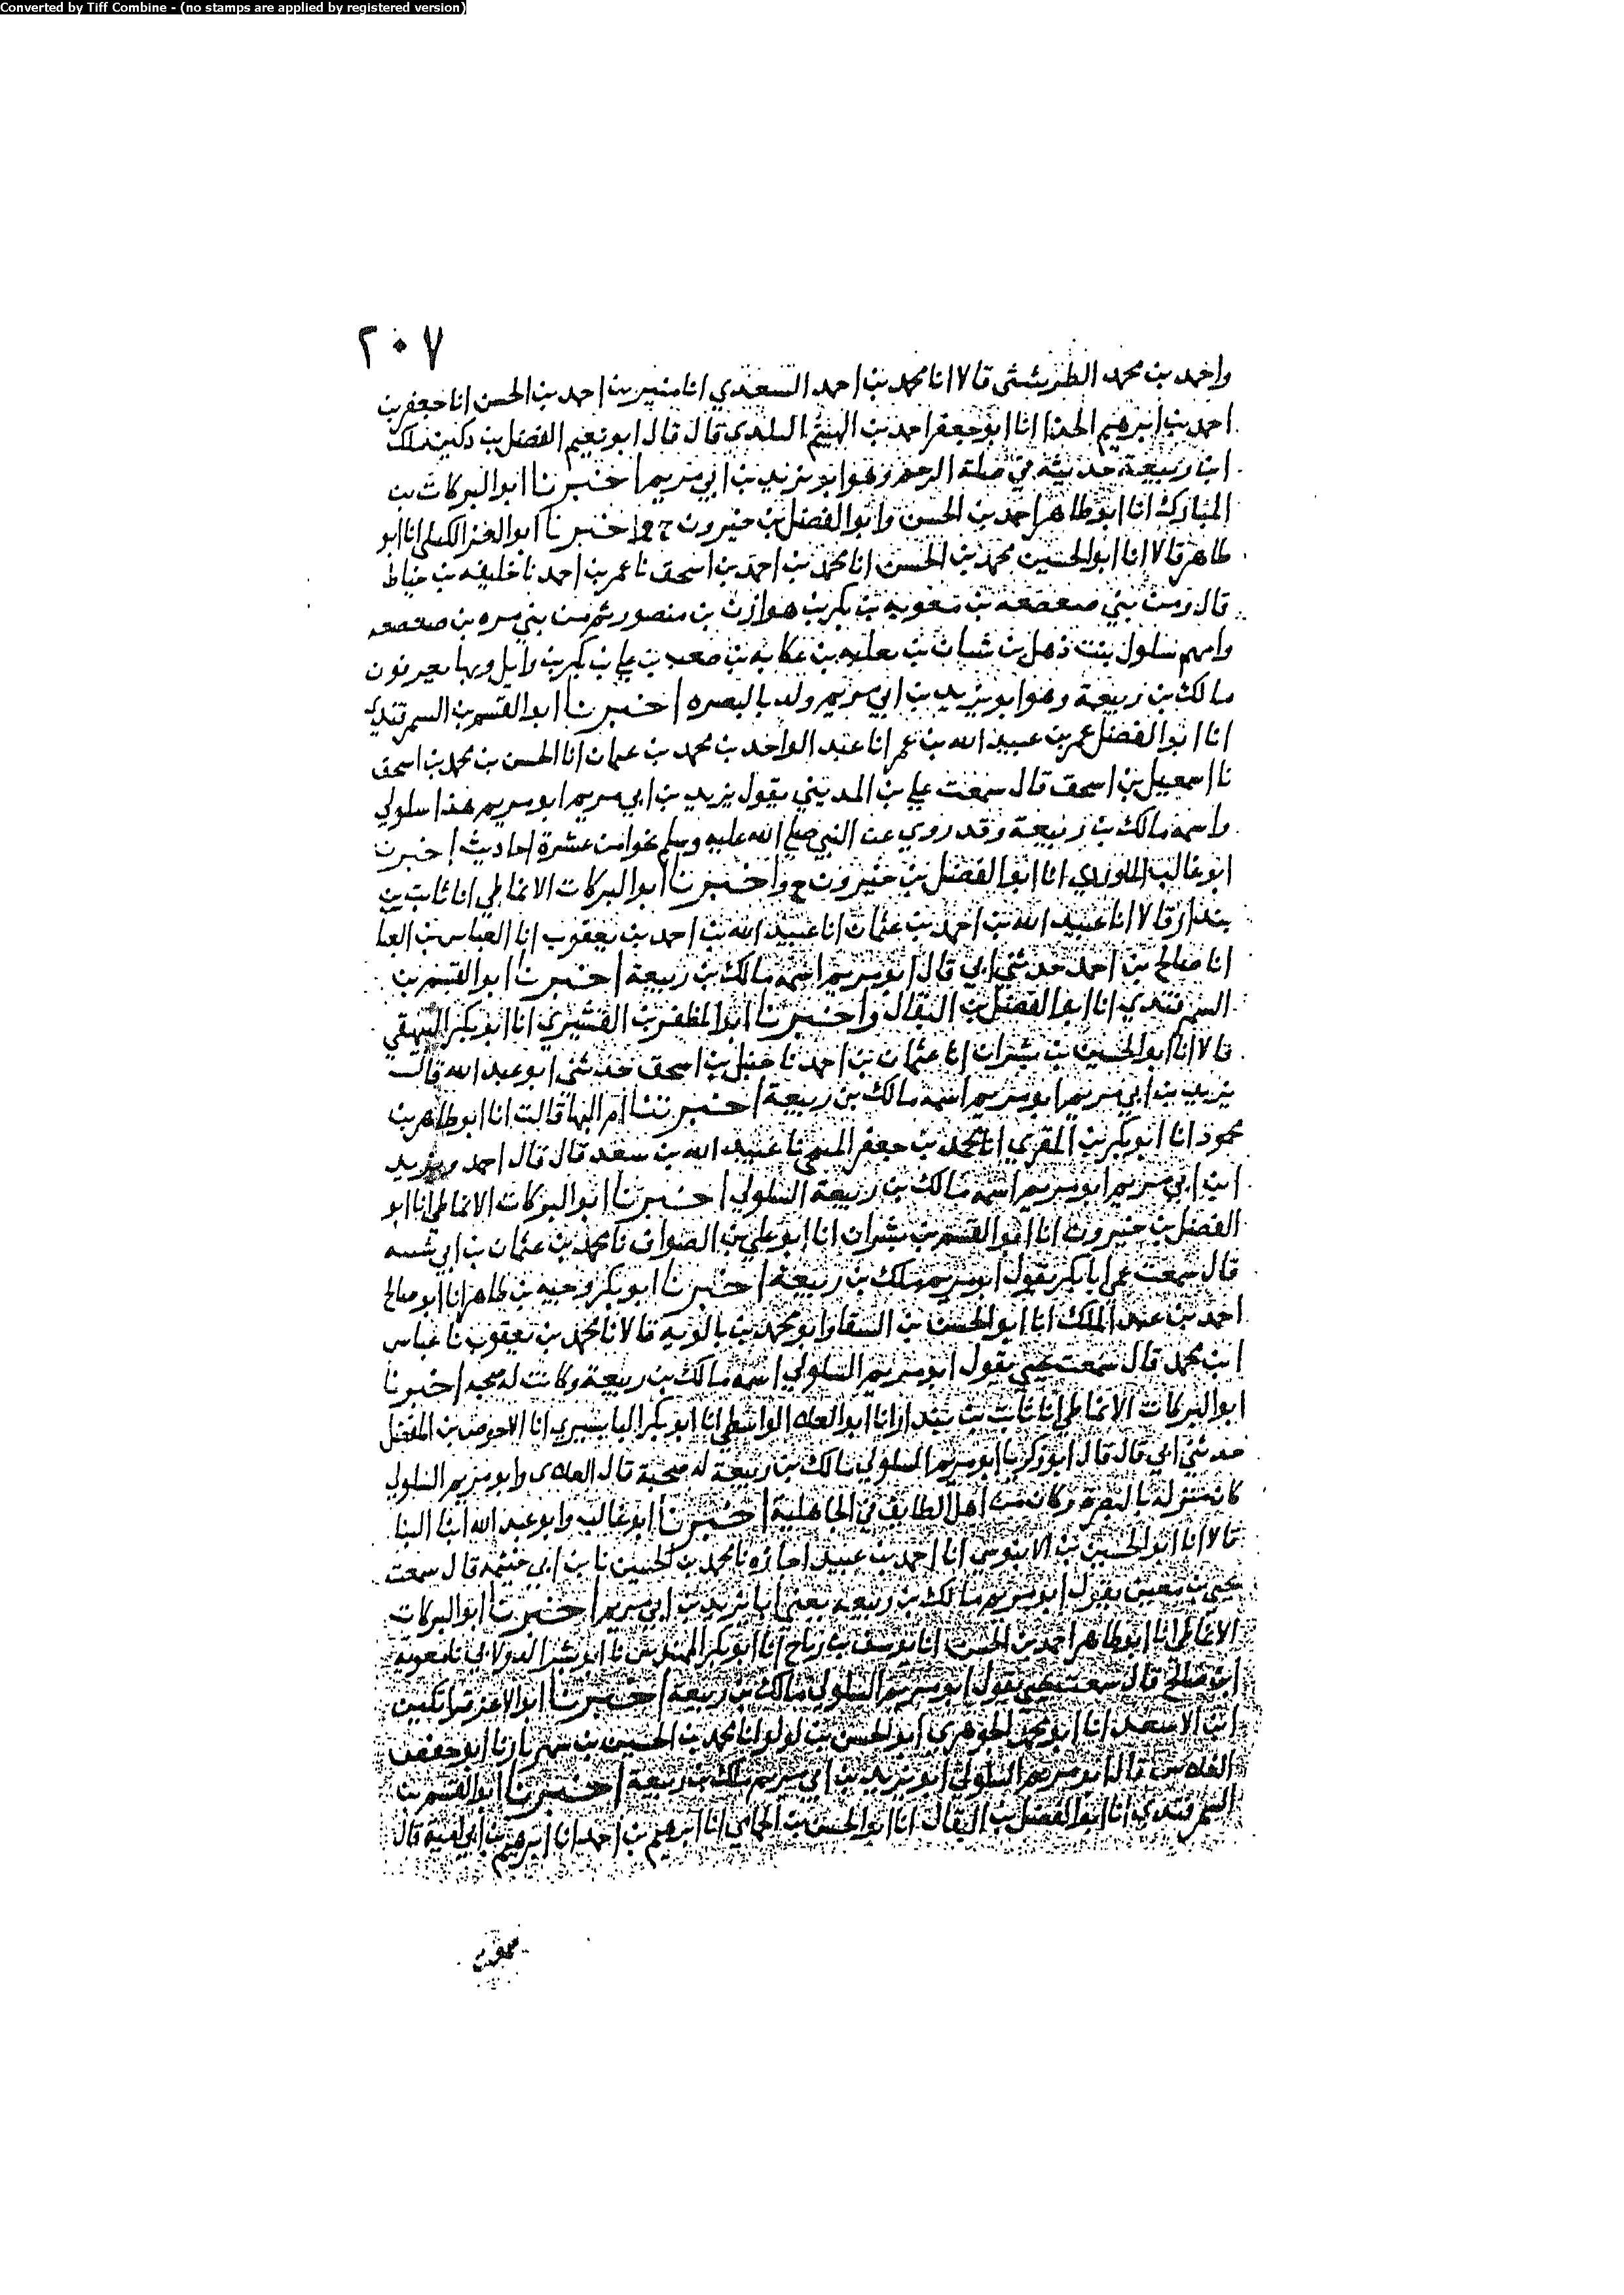 Converted by Tiff Combine - (no stamps are applied by registered version)
٢٠٧
واحمد بن محمد الطريثيثي قالا انا محمد بن احمد السعدي انا منير بن احمد بن الحسن انا جعفر بن
احمد بن ابرهيم الحذا انا ابو جعفر احمد بن الهيثم البلدي قال قال ابو نعيم الفضل بن دكين ملك
ابن ربيعة حديثه في صلة الرحم وهو ابو يزيد بن ابي مريم اخبرنا ابو البركات بن
المبارك انا ابو طاهر احمد بن الحسن وابو الفضل بن خيرون ح واخبرنا ابو العز الكيلي انا ابو
طاهر قالا انا ابو الحسين محمد بن الحسن انا محمد بن احمد بن اسحق نا عمر بن احمد نا خليفه بن خياط
قال ومن بني صعصعه بن معويه بن بكر بن هوازن بن منصور ثم من بني مره بن صعصعه
وامهم سلول بنت ذهل بن شبان بن ثعلبه بن عكابه بن صعب بن علي بن بكر بن وايل وبها يعرفون
مالك بن ربيعة وهو ابو يزيد بن ابي مريم ولد بالبصره اخبرنا ابو القسم بن السمرقندي
انا ابو الفضل عمر بن عبيد الله بن عمر انا عبد الواحد بن محمد بن عثمان انا الحسن بن محمد بن اسحق
نا اسمعيل بن اسحق قال سمعت علي بن المديني يقول يزيد بن ابي مريم ابو مريم هذا سلولي
واسمه مالك بن ربيعة وقد روي عن النبي صلى الله عليه وسلم نحوا من عشرة احاديث اخبرنا
ابو غالب الماوردي انا ابو الفضل بن خيرون ح واخبرنا ابو البركات الانماطي انا ثابت بن
بندار قالا انا عبيد الله بن احمد بن عثمان انا عبيد الله بن احمد بن يعقوب انا العباس بن العبا
انا صالح بن احمد حدثني ابي قال ابو مريم اسمه مالك بن ربيعة اخبرنا ابو القسم بن
السمرقندي انا ابو الفضل بن البقال واخبرنا ابو المظفر بن القشيري انا ابو بكر البيهقي
قالا انا ابو الحسين بن بشران انا عثمان بن احمد نا حنبل بن اسحق حدثني ابو عبد الله قال
يزيد بن ابي مريم ابو مريم اسمه مالك بن ربيعة اخبرتنا ام البها قالت انا ابو طاهر بن
محمود انا ابو بكر بن المقري انا محمد بن جعفر المنبجي نا عبيد الله بن سعد قال قال احمد ويزيد
ابن ابي مريم ابو مريم اسمه مالك بن ربيعة السلولي اخبرنا ابو البركات الانماطي انا ابو
الفضل بن خيرون انا ابو القسم بن بشران انا ابو علي بن الصواف نا محمد بن عثمان بن ابي شيبه
قال سمعت عمي ابا بكر يقول ابو مريم ملك بن ربيعة اخبرنا ابو بكر وجيه بن طاهر انا ابو صالح
احمد بن عبد الملك انا ابو الحسن بن السقا وابو محمد بن بالويه قالا نا محمد بن يعقوب نا عباس
ابن محمد قال سمعت يحيى يقول ابو مريم السلولي اسمه مالك بن ربيعة وكانت له صحبه اخبرنا
ابو البركات الانماطي انا ثابت بن بندار انا ابو العلا الواسطي انا ابو بكر البابسيري انا الاحوص بن المفضل
حدثني ابي قال قال ابو زكريا ابو مريم السلولي مالك بن ربيعة له صحبة قال الغلابي وابو مريم السلولي
كان منزله بالبصره وكان من اهل الطايف في الجاهلية اخبرنا ابو غالب وابو عبد الله ابنا البنا
قالا انا ابو الحسين بن الابنوسي انا احمد بن عبيد اجازه نا محمد بن الحسين نا بن ابي خيثمه قال سمعت
يحيى بن معين يقول ابو مريم مالك بن ربيعه يعني ابا يزيد بن ابي مريم اخبرنا ابو البركات
الانماطي انا ابو طاهر احمد بن الحسن انا يوسف بن رباح انا ابو بكر المهندس نا ابو بشر الدولابي نا معوية
ابن صالح قال سمعت يحيى يقول ابو مريم السلولي مالك بن ربيعة اخبرنا ابو الاعز قراتكين
ابن الاسعد انا ابو محمد الجوهري ابو الحسن بن لولو انا محمد بن الحسين بن شهريار نا ابو حفص
الفلاس قال ابو مريم السلولي ابو يزيد بن ابي مريم ملك بن ربيعة اخبرنا ابو القسم بن
السمرقندي انا ابو الفضل بن البقال انا ابو الحسن بن الحمامي انا ابرهيم بن احمد انا ابرهيم بن ابي امية قال